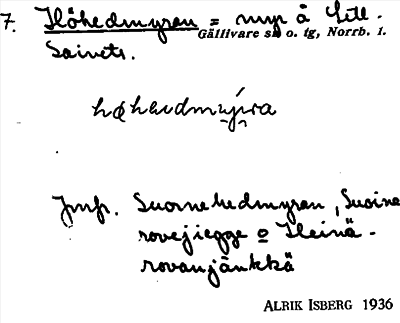 7. Höhedmyran = myr å Lill-
Gällivare sn o. tg, Norrb. l.
Saivets.
Jmfr. Suornehedmyran, Suoine
rovejiegge o Heinä-
rovanjänkkä
ALRIK ISBERG 1936